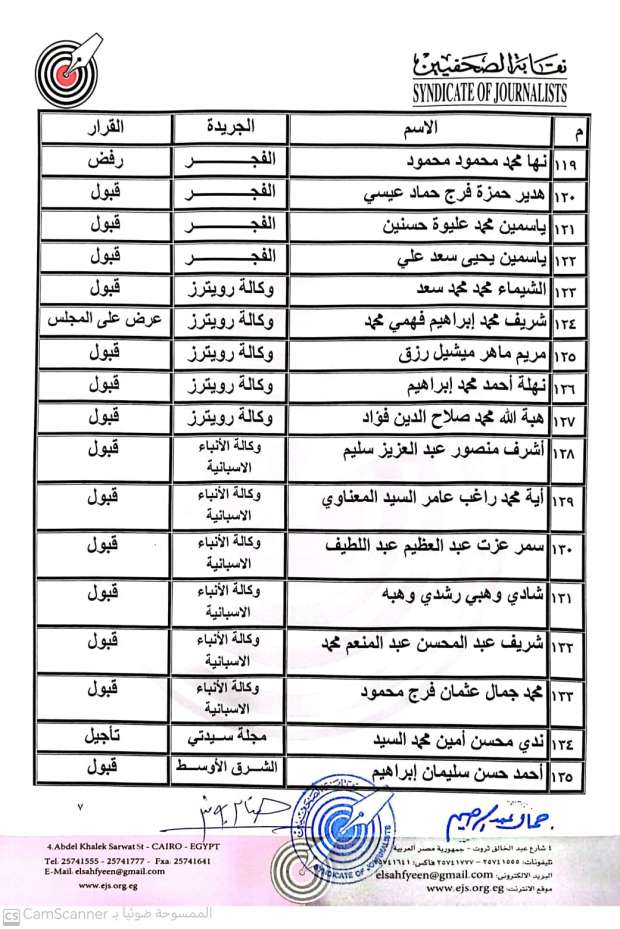 نقابة الصحفيين
SYNDICATE OF JOURNALISTS
م الاسم الجريدة القرار
١١٩ نها محمد محمود محمود الفجر رفض
١٢٠ هدير حمزة فرج حماد عيسي الفجر قبول
١٢١ ياسمين محمد عليوة حسنين الفجر قبول
١٢٢ ياسمين يحيى سعد علي الفجر قبول
١٢٣ الشيماء محمد محمد سعد وكالة رويترز قبول
١٢٤ شريف محمد إبراهيم فهمي محمد وكالة رويترز عرض على المجلس
١٢٥ مريم ماهر ميشيل رزق وكالة رويترز قبول
١٢٦ نهلة أحمد محمد إبراهيم وكالة رويترز قبول
١٢٧ هبة الله محمد صلاح الدين فؤاد وكالة رويترز قبول
١٢٨ أشرف منصور عبد العزيز سليم وكالة الأنباء قبول
الاسبانية
١٢٩ أية محمد راغب عامر السيد المعناوي وكالة الأنباء قبول
الاسبانية
١٣٠ سمر عزت عبد العظيم عبد اللطيف وكالة الأنباء قبول
الاسبانية
١٣١ شادي وهبي رشدي وهبه وكالة الأنباء قبول
الاسبانية
١٣٢ شريف عبد المحسن عبد المنعم محمد وكالة الأنباء قبول
الاسبانية
١٣٣ محمد جمال عثمان فرج محمود وكالة الأنباء قبول
الاسبانية
١٣٤ ندي محسن أمين محمد السيد مجلة سيدتي تأجيل
١٣٥ أحمد حسن سليمان إبراهيم الشرق الأوسط قبول
٧
SYNDICATE OF JOURNALISTS
4.Abdel Khalek Sarwat St - CAIRO - EGYPT
Tel: 25741555 - 25741777 - Fax: 25741641
E-Mail: elsahfyeen@gmail.com
www.ejs.org.eg
٤ شارع عبد الخالق ثروت - جمهورية مصر العربية
تليفونات: ٢٥٧٤١٥٥٥ - ٢٥٧٤١٧٧٧ فاكس: ٢٥٧٤١٦٤١
البريد الالكترونى: elsahfyeen@gmail.com
موقع الانترنت: www.ejs.org.eg
CS CamScanner الممسوحة ضوئيا بـ